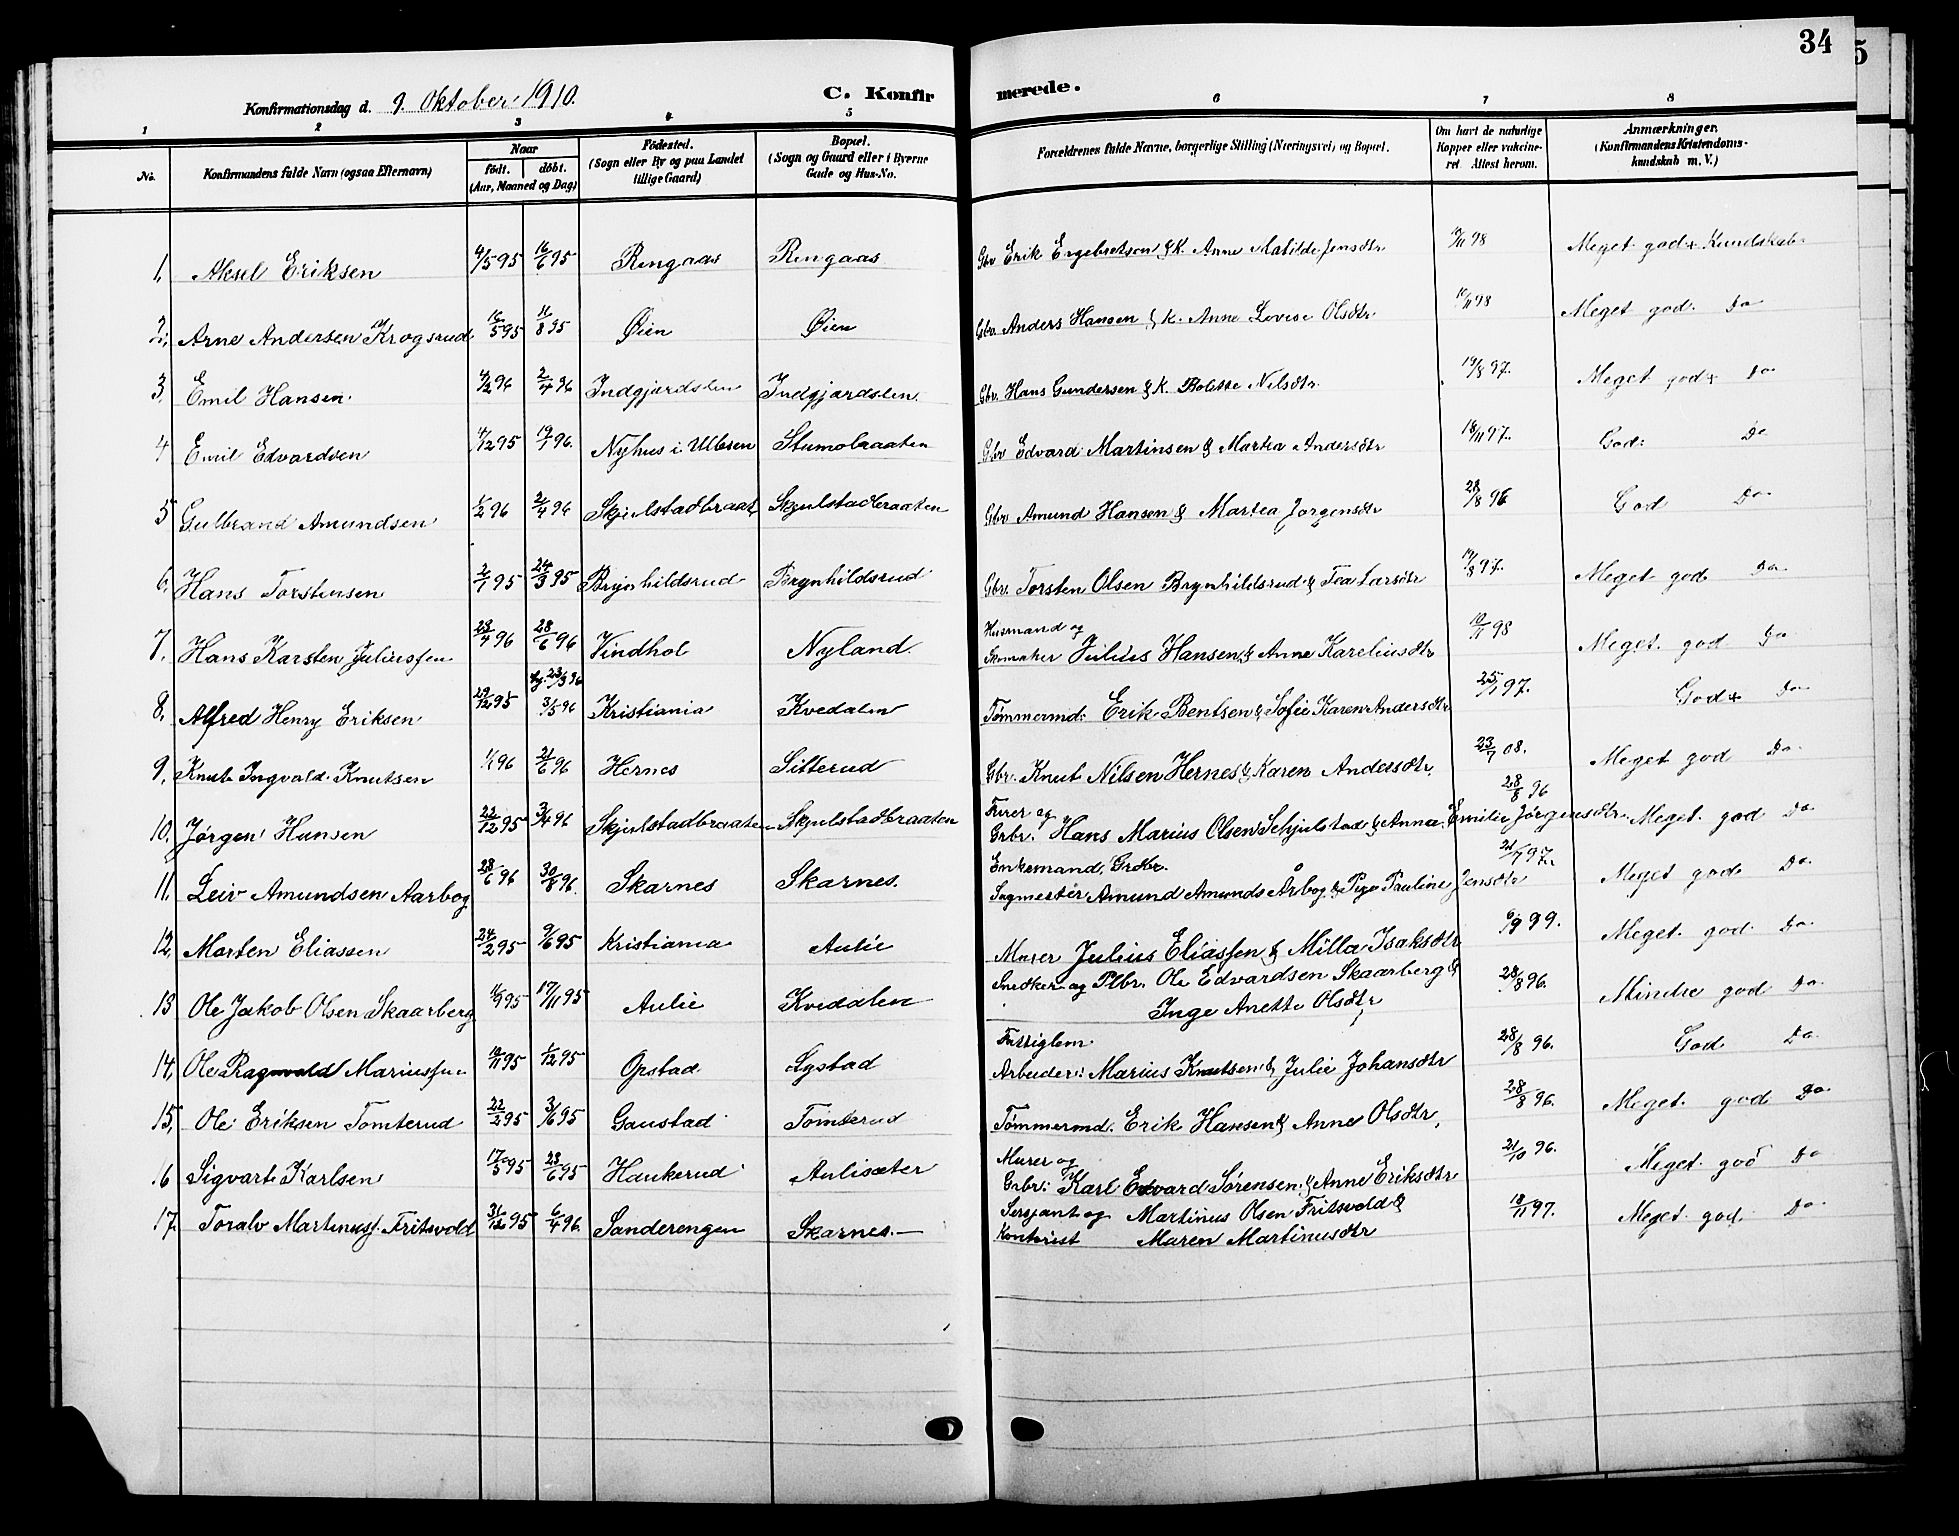 34
5
Konfirmationsdag d. 9. Oktober 1910.
C. Konfir
merede.
1 2 3 4 5 6 7 8
No.
Konfirmandens fulde Navn (ogsaa Efternavn)
Naar
født. døbt.
(Aar, Maaned og Dag)
Fødested.
(Sogn eller By og paa Landet
tillige Gaard)
Bopæl.
(Sogn og Gaard eller i Byerne
Gade og Hus-No.
Forældrenes fulde Navne, borgerlige Stilling (Næringsvei) og Bopæl.
Om havt de naturlige
Kopper eller vakcine-
ret Attest herom.
Anmærkninger.
(Konfirmandens Kristendoms-
kundskab m. V.)
1, Aksel Eriksen 4/5 95 16/6 95 Rengaas Rengaas Gbr Erik Engebretsen & K. Anne Matilde Jensdtr 98 Meget god Kundskab
2, Arne Andersen Krogsrud 16/5 95 11/8 95 Øien Øien Gbr. Anders Hansen & K. Anne Lovise Olsdtr. 98 Meget god. Do
3, Emil Hansen. 4/2 96 2/4 96 Indgjærdsten Indgjærdsten. Gbr. Hans Gundersen & K. Bolette Nilsdtr. 19/8 97. Meget god Do
4 Emil Edvardsen 12 95 19/1 96. Nyhus i Ullsen Stumobraaten Gbr Edvard Martinsen & Martea Andersdtr 18/11 97. God: Do
5 Gulbrand Amundsen 1/2 96 2/4 96 Skjulstadbraat Skjulstadbraaten Gbr Amund Hansen & Martea Jørgensdtr 28/8 96 God Do
6, Hans Torstensen 2/1 95 24/3 95 Brynhildsrud Brynhildsrud Gbr. Torsten Olsen Brynhildsrud & Tea Larsdtr 19/8 97. Meget god Do
7, Hans Karsten Juliussen 23/4 96 28/6 96 Vindhol Nyland. Husmand og
Skomaker Julius Hansen & Anne Kareliusdtr 98 Meget god Do
8, Alfred Henry Eriksen 29/12 95 23/3 96
3/5 96 Kristiania Kvedalen Tømmermd: Erik Bentsen & Sofie Karen Andersdtr 25/1 97. God Do
9, Knut Ingvald Knutsen 1/1 96 21/6 96 Hernes Sitterud Gbr. Knut Nilsen Hernes & Karen Andersdtr. 23/7 08. Meget god Do
10, Jørgen Hansen 22/12 95 3/4 96 Skjulstadbraaten Skjulstadbraaten Furer og
Grbr. Hans Marius Olsen Schjulstad & Anna Emilie Jørgensdtr. 28/8 96 Meget god Do
11, Leiv Amundsen Aarbog 28/6 96 30/8 96. Skarnes Skarnes. Enkemand, Grdbr.
Sagmester Amund Amunds Årbog & Pauline Jensdtr 21/7 97. Meget god Do
12, Morten Eliassen 24/2 95 9/6 95 Kristiania Aulie Murer Julius Eliassen & Milla Isaksdtr 6/9 99. Meget god Do
13 Ole Jakob Olsen Skaarberg 95 17/11 95 Aulie Kvedalen Snedker og Plbr. Ole Edvardsen Skaarberg &
Inge Anette Olsdtr 28/8 96. Mindre god Do
14, Ole Ragnvald Mariussen 95 1/12 95 Opstad Systad Fattiglem.
Arbeider: Marius Knutsen & Julie Johansdtr 28/8 96. God Do
15, Ole Eriksen Tomterud 22/2 95 3/6 95 Gaustad Tomterud Tømmermd. Erik Hansen & Anne Olsdtr, 28/8 96. Meget god Do
16 Sigvart Karlsen 17/5 95 23/6 95 Haukerud Aulisæter Murer og
Grbr: Karl Edvard Sørensen & Anne Eriksdtr 21/10 96. Meget god Do
17. Toralv Martinuss. Fritsvold 31/12 95 6/4 96. Sanderengen Skarnes.— Sersjant og Martinus Olsen Fritsvold &
Kontorist Maren Martinusdtr 18/11 97. Meget god Do